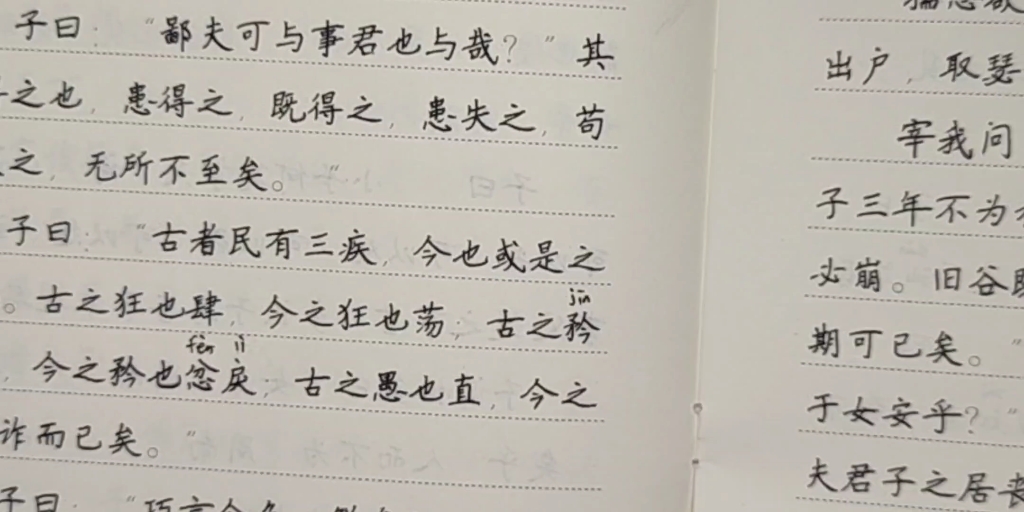 子曰："鄙夫可与事君也与哉？"其
之也，患得之，既得之，患失之，苟
之，无所不至矣。"
子曰："古者民有三疾，今也或是之
。古之狂也肆，今之狂也荡，古之矜
jīn
，今之矜也忿戾，古之愚也直，今之
fèn lì
诈而已矣。"
子曰："巧言令色，鲜
出户，取瑟
宰我问
子三年不为
必崩。旧谷
期可已矣。"
于女安乎？"
夫君子之居丧